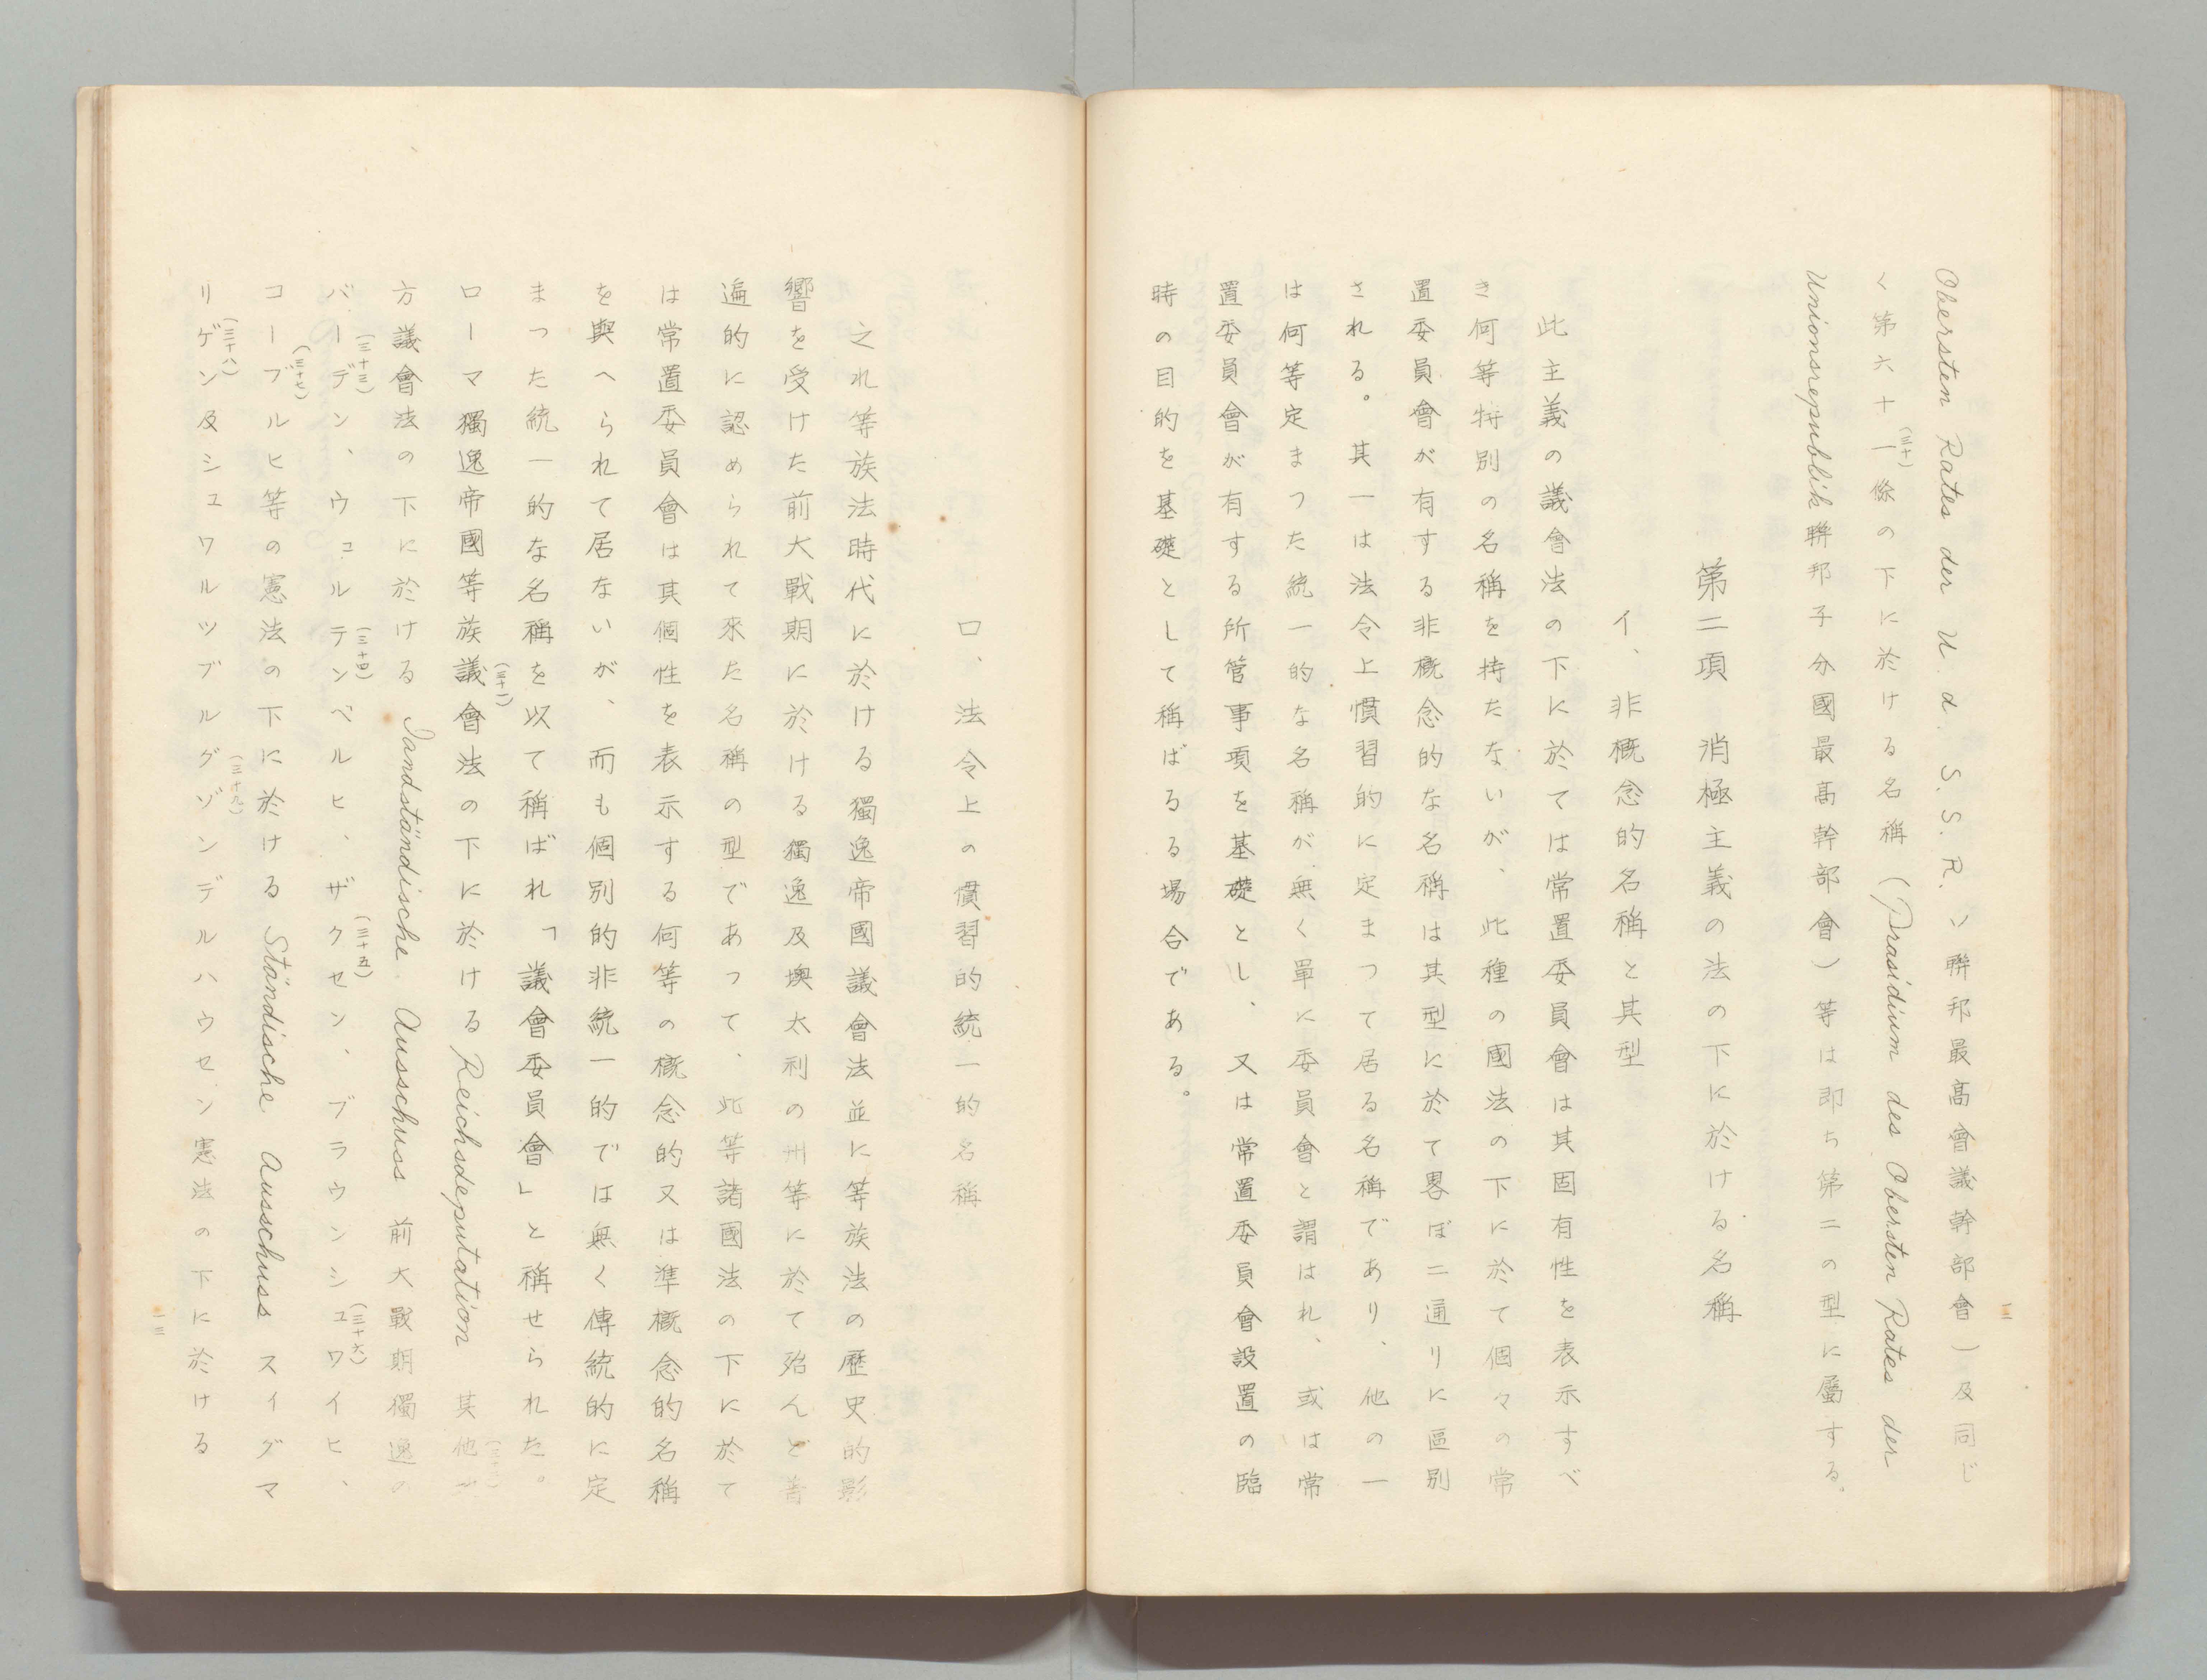 Obersten Rates der U. d. S. S. R. ン聯邦最高會議幹部會)及同じ
く第六十一條の下に於ける名稱(Präsidium des Obersten Rates der
(三十)
Unionsrepublik 聯邦子分國最高幹部會)等は即ち第二の型に屬する。
第二項 消極主義の法の下に於ける名稱
イ、非概念的名稱と其型
此主義の議會法の下に於ては常置委員會は其固有性を表示すべ
き何等特別の名稱を持たないが、此種の國法の下に於て個々の常
置委員會が有する非概念的な名稱は其型に於て畧ぼ二通リに區別
される。其一は法令上慣習的に定まつて居る名稱であり、他の一
は何等定まつた統一的な名稱が無く單に委員會と謂はれ、或は常
置委員會が有する所管事項を基礎とし、又は常置委員會設置の臨
時の目的を基礎として稱ばるる場合である。
一二
ロ、法令上の慣習的統一的名稱
之れ等族法時代に於ける獨逸帝國議會法並に等族法の歷史的影
響を受けた前大戰期に於ける獨逸及墺太利の州等に於て殆んど普
遍的に認められて來た名稱の型であつて、此等諸國法の下に於て
は常置委員會は其個性を表示する何等の概念的又は準概念的名稱
を與へられて居ないが、而も個別的非統一的では無く傳統的に定
まつた統一的な名稱を以て稱ばれ「議會委員會」と稱せられた。
ローマ獨逸帝國等族議會法の下に於ける Reichsdeputation 其他
(三十一)
(三十二)
方議會法の下に於ける Landständische Ausschuss 前大戰期獨逸の
バーデン、ウュルテンベルヒ、ザクセン、ブラウンシュワイヒ、
(三十三)
(三十四)
(三十五)
(三十六)
コーブルヒ等の憲法の下に於ける Ständische Ausschuss スイグマ
(三十七)
リゲン及シュワルツブルグゾンデルハウセン憲法の下に於ける
(三十八)
(三十九)
一三